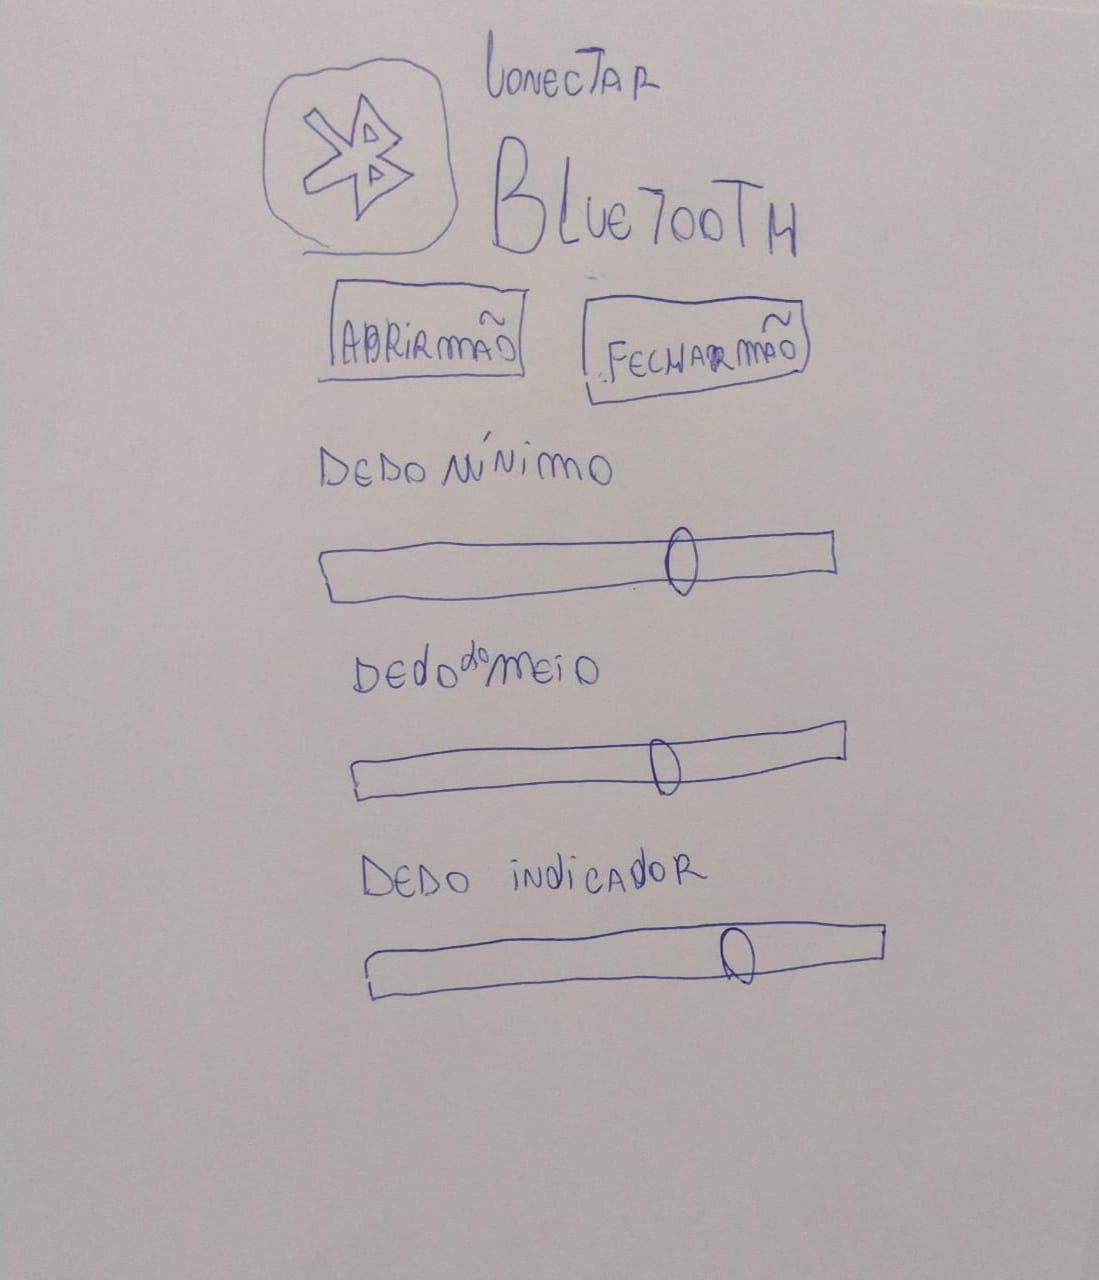 CONECTAR
BLUETOOTH
ABRIR MÃO
FECHAR MÃO
DEDO MÍNIMO
DEDO do MEIO
DEDO INDICADOR